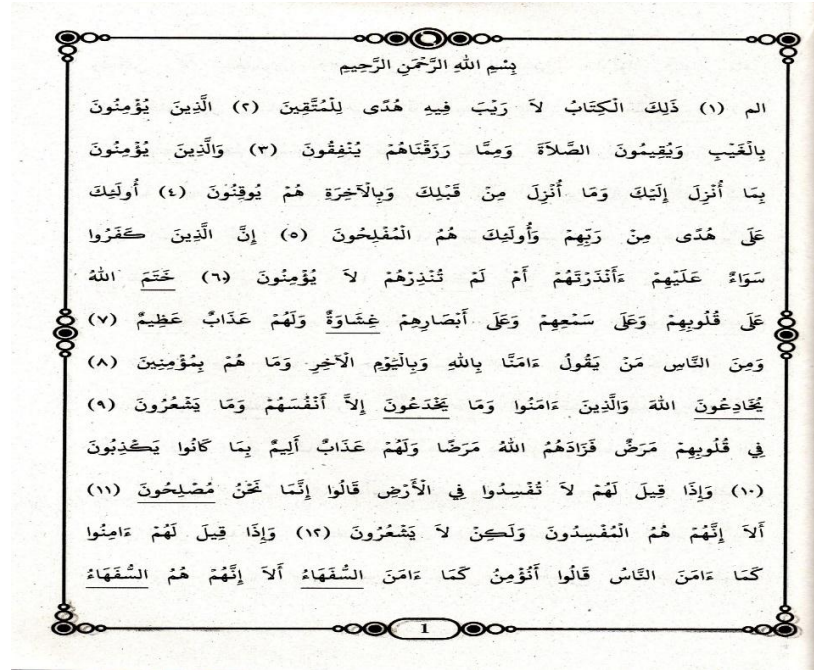 بِسْمِ اللهِ الرَّحْمَنِ الرَّحِيمِ
الم (١) ذَلِكَ الْكِتَابُ لاَ رَيْبَ فِيهِ هُدًى لِلْمُتَّقِينَ (٢) الَّذِينَ يُؤْمِنُونَ
بِالْغَيْبِ وَيُقِيمُونَ الصَّلاَةَ وَمِمَّا رَزَقْنَاهُمْ يُنْفِقُونَ (٣) وَالَّذِينَ يُؤْمِنُونَ
بِمَا أُنْزِلَ إِلَيْكَ وَمَا أُنْزِلَ مِنْ قَبْلِكَ وَبِالْآخِرَةِ هُمْ يُوقِنُونَ (٤) أُولَئِكَ
عَلَى هُدًى مِنْ رَبِّهِمْ وَأُولَئِكَ هُمُ الْمُفْلِحُونَ (٥) إِنَّ الَّذِينَ كَفَرُوا
سَوَاءٌ عَلَيْهِمْ ءَأَنْذَرْتَهُمْ أَمْ لَمْ تُنْذِرْهُمْ لاَ يُؤْمِنُونَ (٦) خَتَمَ اللهُ
عَلَى قُلُوبِهِمْ وَعَلَى سَمْعِهِمْ وَعَلَى أَبْصَارِهِمْ غِشَاوَةٌ وَلَهُمْ عَذَابٌ عَظِيمٌ (٧)
وَمِنَ النَّاسِ مَنْ يَقُولُ ءَامَنَّا بِاللهِ وَبِالْيَوْمِ الْآخِرِ وَمَا هُمْ بِمُؤْمِنِينَ (٨)
يُخَادِعُونَ اللهَ وَالَّذِينَ ءَامَنُوا وَمَا يَخْدَعُونَ إِلاَّ أَنْفُسَهُمْ وَمَا يَشْعُرُونَ (٩)
فِي قُلُوبِهِمْ مَرَضٌ فَزَادَهُمُ اللهُ مَرَضًا وَلَهُمْ عَذَابٌ أَلِيمٌ بِمَا كَانُوا يَكْذِبُونَ
(١٠) وَإِذَا قِيلَ لَهُمْ لاَ تُفْسِدُوا فِي الْأَرْضِ قَالُوا إِنَّمَا نَحْنُ مُصْلِحُونَ (١١)
أَلاَ إِنَّهُمْ هُمُ الْمُفْسِدُونَ وَلَكِنْ لاَ يَشْعُرُونَ (١٢) وَإِذَا قِيلَ لَهُمْ ءَامِنُوا
كَمَا ءَامَنَ النَّاسُ قَالُوا أَنُؤْمِنُ كَمَا ءَامَنَ السُّفَهَاءُ أَلاَ إِنَّهُمْ هُمُ السُّفَهَاءُ
1